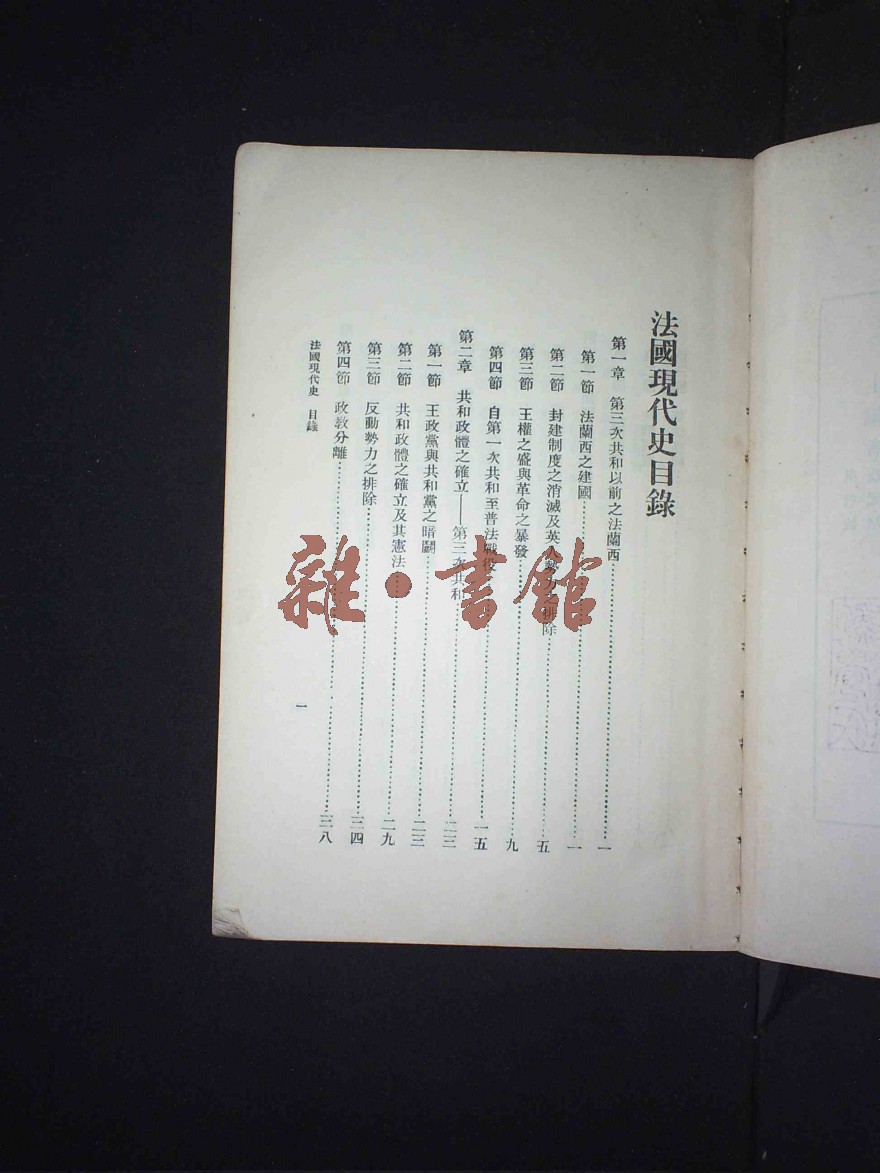 法國現代史目錄
第一章　第三次共和以前之法蘭西……一
第一節　法蘭西之建國……一
第二節　封建制度之消滅及英人勢力之排除……五
第三節　王權之盛與革命之暴發……九
第四節　自第一次共和至普法戰役……一五
第二章　共和政體之確立——第三次共和……二三
第一節　王政黨與共和黨之暗鬭……二三
第二節　共和政體之確立及其憲法……二九
第三節　反動勢力之排除……三四
第四節　政教分離……三八
法國現代史　目錄
一
雜·書館